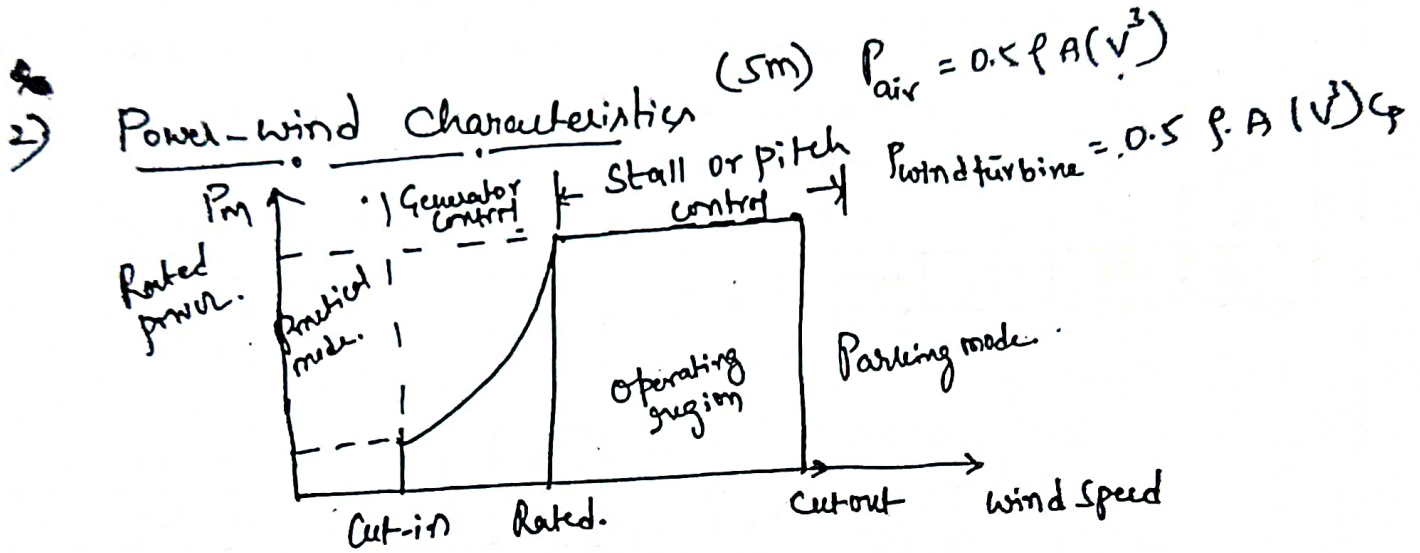 2) Power-wind Characteristics (5m) Pair = 0.5 ρ A(V³)
Pwindturbine = 0.5 ρ. A (V³)Cp
Pm
Generator control
Stall or pitch control
Rated power.
mode.
operating region
Parking mode.
Cut-in Rated. Cutout wind speed